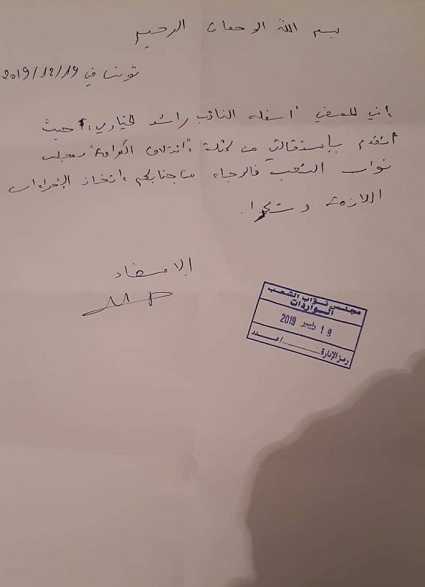 بسم الله الرحمان الرحيم
تونس في 2019/12/19
إني الممضي أسفله النائب راشد الخياري، حيث
أتقدم بإستقالتي من كتلة "ائتلاف الكرامة" بمجلس
نواب الشعب فالرجاء من جنابكم اتخاذ الإجراءات
اللازمة وشكرا.
الإمضاء
مجلس نواب الشعب
الـواردات
19 ديسمبر 2019
رمز الإدارة ........ عـدد